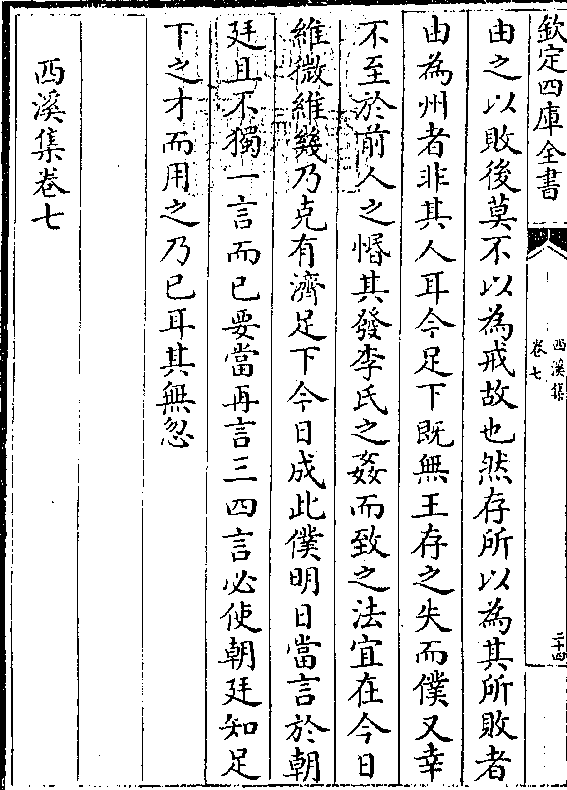 欽定四庫全書
西溪集
卷七
二十四
由之以敗後莫不以為戒故也然存所以為其所敗者
由為州者非其人耳今足下既無王存之失而僕又幸
不至於前人之惛其發李氏之姦而致之法宜在今日
維微維幾乃克有濟足下今日成此僕明日當言於朝
廷且不獨一言而已要當再言三四言必使朝廷知足
下之才而用之乃已耳其無忽
西溪集卷七